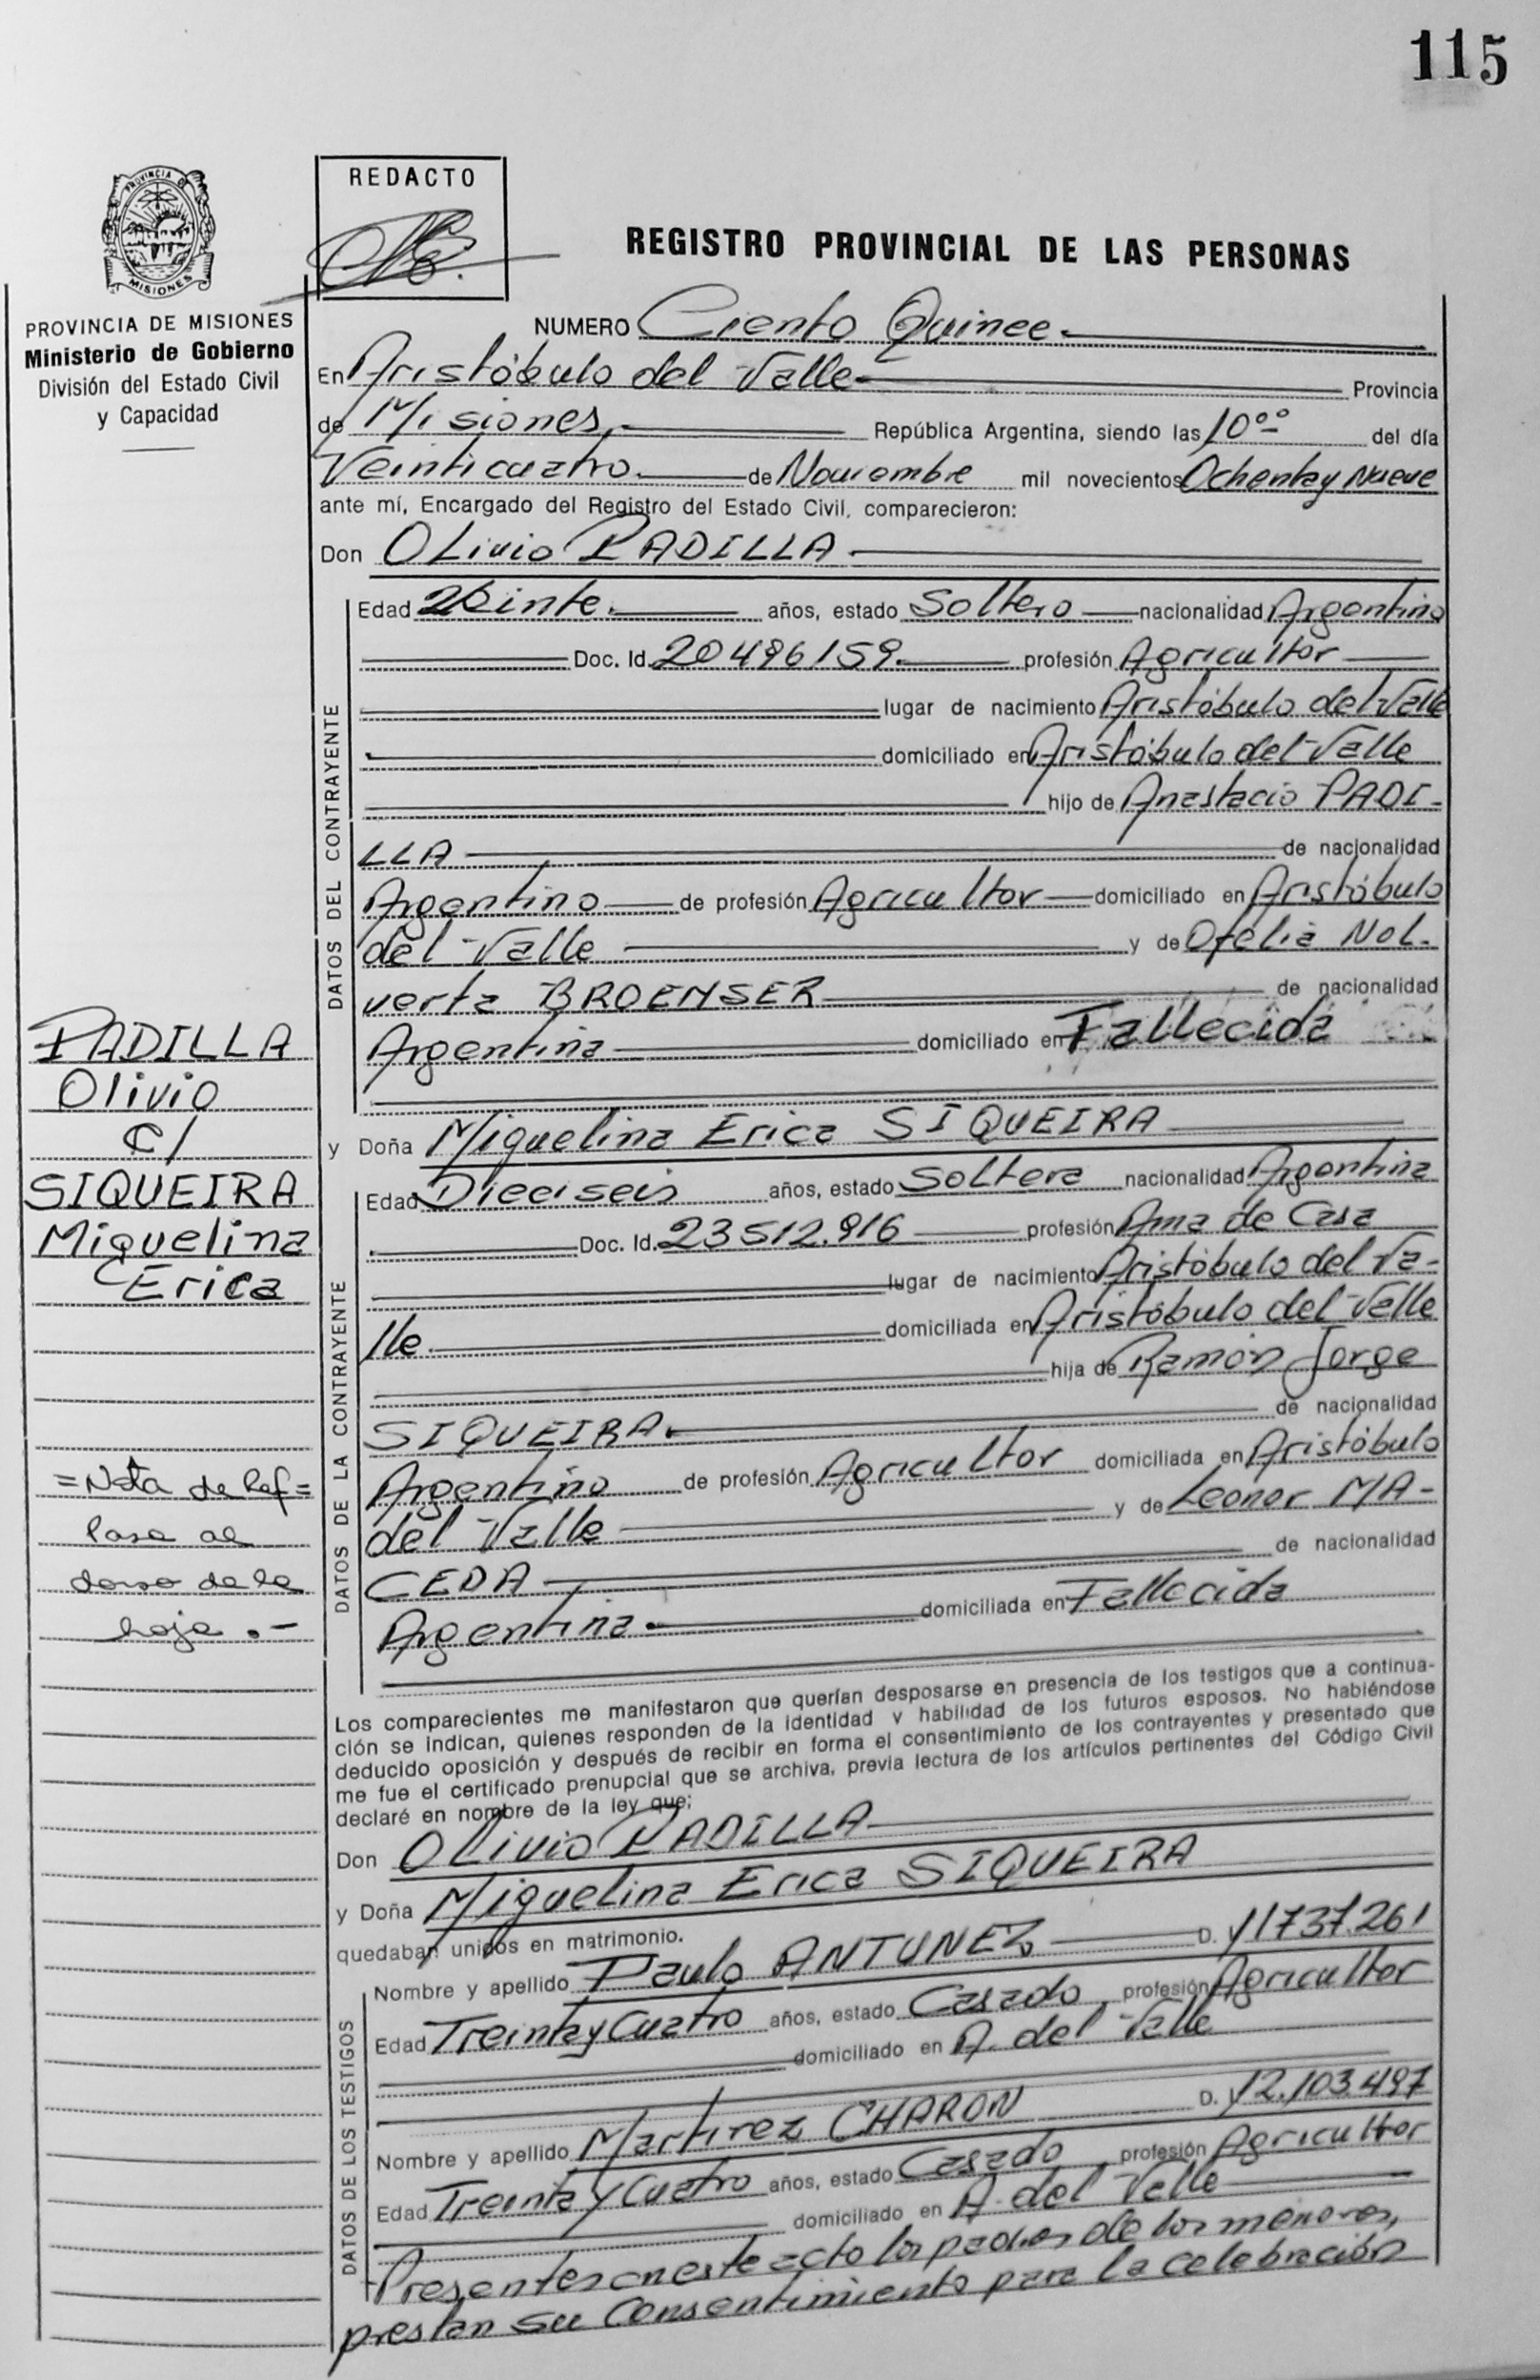 115
PROVINCIA DE
MISIONES
REDACTO
REGISTRO PROVINCIAL DE LAS PERSONAS
PROVINCIA DE MISIONES
Ministerio de Gobierno
División del Estado Civil
y Capacidad
NUMERO Ciento Quince
En Aristóbulo del Valle Provincia
de Misiones República Argentina, siendo las 10°° del día
Veinticuatro de Noviembre mil novecientos Ochenta y Nueve
ante mí, Encargado del Registro del Estado Civil, comparecieron:
Don OLivio PADILLA
DATOS DEL CONTRAYENTE
Edad Veinte años, estado Soltero nacionalidad Argentino
Doc. Id. 20496159 profesión Agricultor
lugar de nacimiento Aristóbulo del Valle
domiciliado en Aristóbulo del Valle
hijo de Anastacio PADI-
LLA de nacionalidad
Argentino de profesión Agricultor domiciliado en Aristóbulo
del Valle y de Ofelia Nol-
verta BROENSER de nacionalidad
Argentina domiciliado en Fallecida
PADILLA
Olivio
C/
SIQUEIRA
Miquelina
Erica
y Doña Miguelina Erica SIQUEIRA
DATOS DE LA CONTRAYENTE
Edad Dieciseis años, estado Soltera nacionalidad Argentina
Doc. Id. 23512.916 profesión Ama de Casa
lugar de nacimiento Aristóbulo del Va-
lle domiciliada en Aristóbulo del Valle
hija de Ramón Jorge
SIQUEIRA de nacionalidad
Argentino de profesión Agricultor domiciliada en Aristóbulo
del Valle y de Leonor MA-
CEDA de nacionalidad
Argentina domiciliada en Fallecida
=Nota de Ref=
Pasa al
dorso de la
hoja.-
Los comparecientes me manifestaron que querían desposarse en presencia de los testigos que a continua-
ción se indican, quienes responden de la identidad y habilidad de los futuros esposos. No habiéndose
deducido oposición y después de recibir en forma el consentimiento de los contrayentes y presentado que
me fue el certificado prenupcial que se archiva, previa lectura de los artículos pertinentes del Código Civil
declaré en nombre de la ley que;
Don OLivio PADILLA
y Doña Miguelina Erica SIQUEIRA
quedaban unidos en matrimonio.
DATOS DE LOS TESTIGOS
Nombre y apellido Paulo ANTUNEZ D. 11737.261
Edad Treinta y Cuatro años, estado Casado profesión Agricultor
domiciliado en A. del Valle
Nombre y apellido Martirez CHARON D. 12.103.497
Edad Treinta y Cuatro años, estado Casado profesión Agricultor
domiciliado en A. del Valle
Presentes en este acto los padres de los menores,
prestan su Consentimiento para la celebración